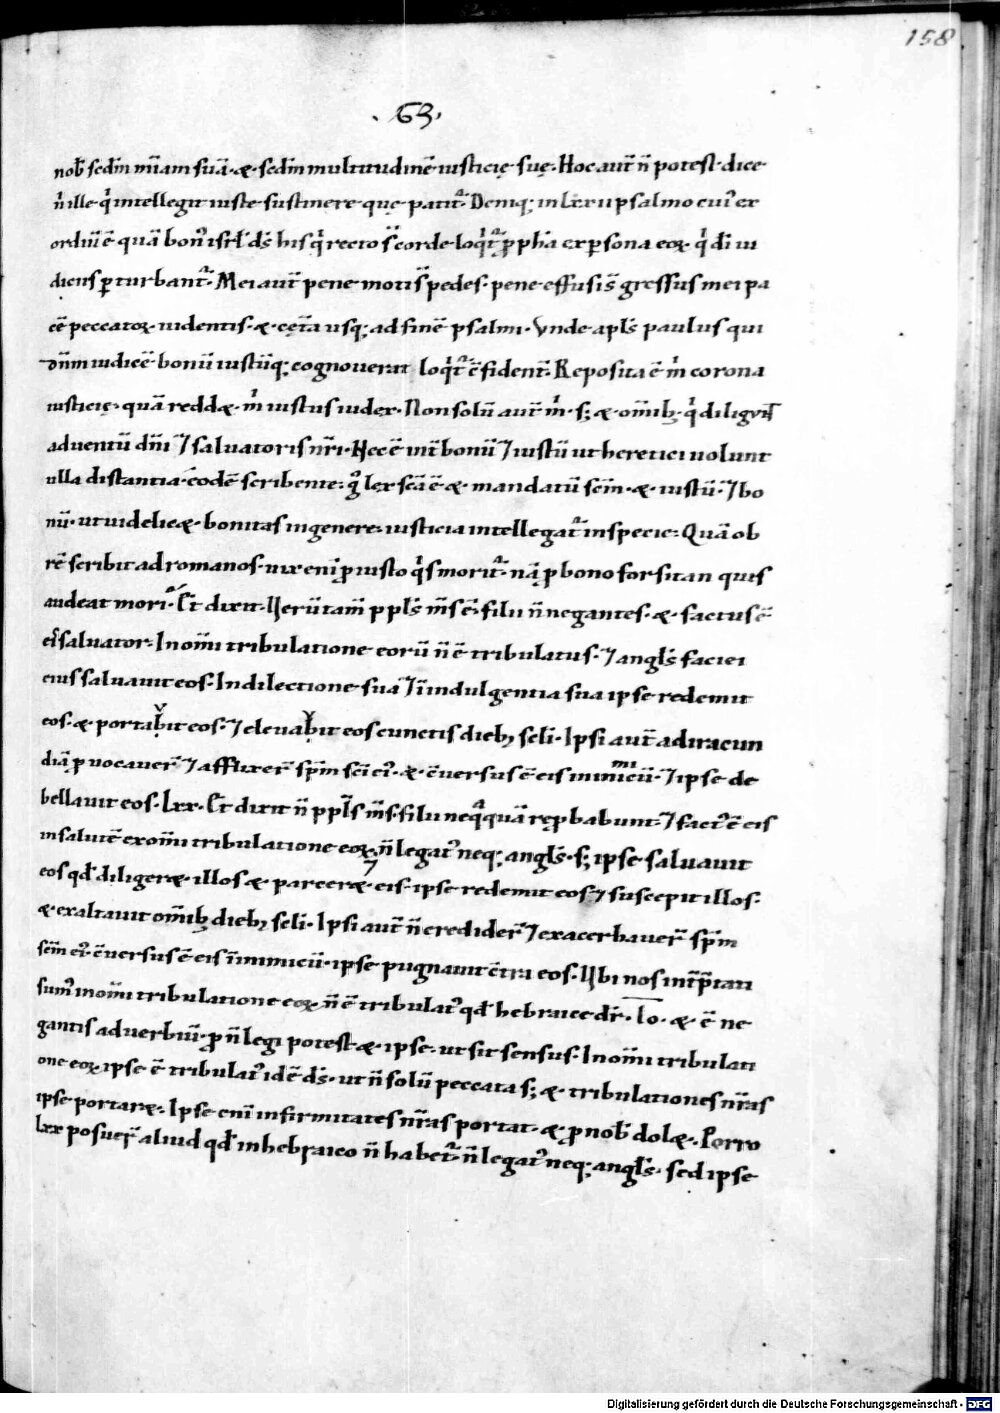 158
· 63 ·
nob̄ sed̄m mīam suā· & · sed̄m multitudinē iusticię suę· Hoc aut̄ n̄ potest dice
n̄ ille q̓ intellegit iuste sustinere quę patit᷑· Deniq; in lxxii psalmo cui᷒ ex
ordiū ē quā bon᷒ isrl̄ d̄s his q̓ recto s̄ corde loq̓t᷑ ꝓpħa ex ꝑsona eoꝝ q̓ d̄i iu
diciis ꝑturbant᷑· Mei aut̄ pene moti s̄ pedes· pene effusi s̄ gressus mei pa
cē peccatoꝝ uidentis· & cęt̄a usq; ad finē psalmi· Vnde apl̄s paulus qui
dn̄m iudicē bonū iustūq; cognouerat loq̓t᷑ c̄fident̄· Reposita ē m̓ corona
iusticię· quā redd& m̓ iustus iudex· Non solū aut̄ m̓· s; & om̄ib; q̓ diligunt
aduentū dn̄i ⁊ saluatoris nr̄i· Nec ē int̄ bonū ⁊ iustū ut heretici uolunt
ulla distantia· eodē scribente· q̊ lex sc̄a ē & mandatū sc̄m· & iustū· ⁊ bo
nū· ut uidelic& bonitas in genere· iusticia intellegat᷑ in specie· Quā ob
rē scribit ad romanos· uix eni ꝓ iusto q̓s morit᷑· nā ꝓ bono forsitan quis
audeat mori· Et dixit· Uerūtam̄ ppl̄s m̄s ē· filii n̄ negantes· & factus ē
eis saluator· In om̄i tribulatione eorū n̄ ē tribulatus· ⁊ angl̄s faciei
eius saluauit eos· In dilectione sua ⁊ ī indulgentia sua ipse redemit
eos· & portabit eos· ⁊ eleuabit eos cunctis dieb; sc̄li· Ipsi aut̄ ad iracun
diā ꝓuocauer̄ ⁊ afflixer̄ sp̄m sc̄i ei᷒· & c̄uersus ē eis in inimicū· ⁊ ipse de
bellauit eos· Lxx· Et dixit n̄ ppl̄s m̄s· filii neq̄quā rep̱babunt· ⁊ fact᷒ ē eis
in salutē ex om̄i tribulatione eoꝝ· n̄ legat᷒ neq; angl̄s· s; ipse saluauit
eos qd̄ diliger& illos & parcer& eis· ipse redemit eos ⁊ suscepit illos·
& exaltauit om̄ib; dieb; sc̄li· Ipsi aut̄ n̄ credider̄ ⁊ exacerbauer̄ sp̄m
sc̄m ei᷒· c̄uersus ē eis ī inimicū· ipse pugnauit c̄tra eos· Ubi nos int̄p̄tati
sum᷒ in om̄i tribulatione eoꝝ n̄ ē tribulat᷒ qd̄ hebraice dr̄· lo· & ē ne
gantis aduerbiū· ꝓ n̄ legi potest & ipse· ut sit sensus· In om̄i tribulati
one eoꝝ ipse ē tribulat᷒ id ē d̄s· ut n̄ solū peccata s; & tribulationes nr̄as
ipse portar&· Ipse eni infirmitates nr̄as portat· & ꝓ nob̄ dol&· Porro
lxx posuer̄ aliud qd̄ in hebraico n̄ habet᷑· n̄ legat᷒ neq; angl̄s· sed ipse
Digitalisierung gefördert durch die Deutsche Forschungsgemeinschaft - DFG